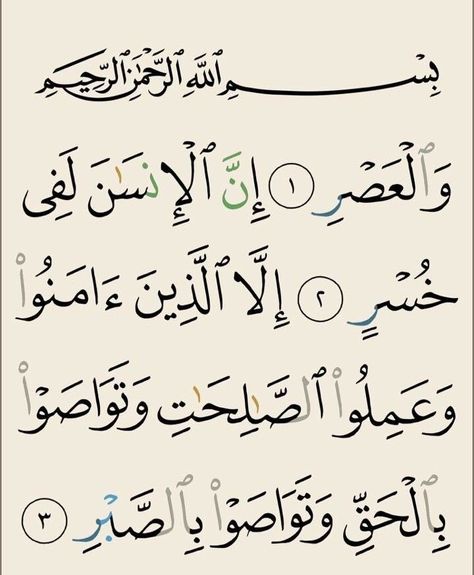 بِسْمِ ٱللَّهِ ٱلرَّحْمَٰنِ ٱلرَّحِيمِ
وَٱلْعَصْرِ ١ إِنَّ ٱلْإِنسَٰنَ لَفِى
خُسْرٍ ٢ إِلَّا ٱلَّذِينَ ءَامَنُوا۟
وَعَمِلُوا۟ ٱلصَّٰلِحَٰتِ وَتَوَاصَوْا۟
بِٱلْحَقِّ وَتَوَاصَوْا۟ بِٱلصَّبْرِ ٣